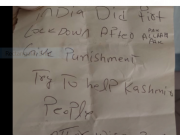 nDia Did First
Lockdown After
Give Punishment
Try To help Kashmir
People